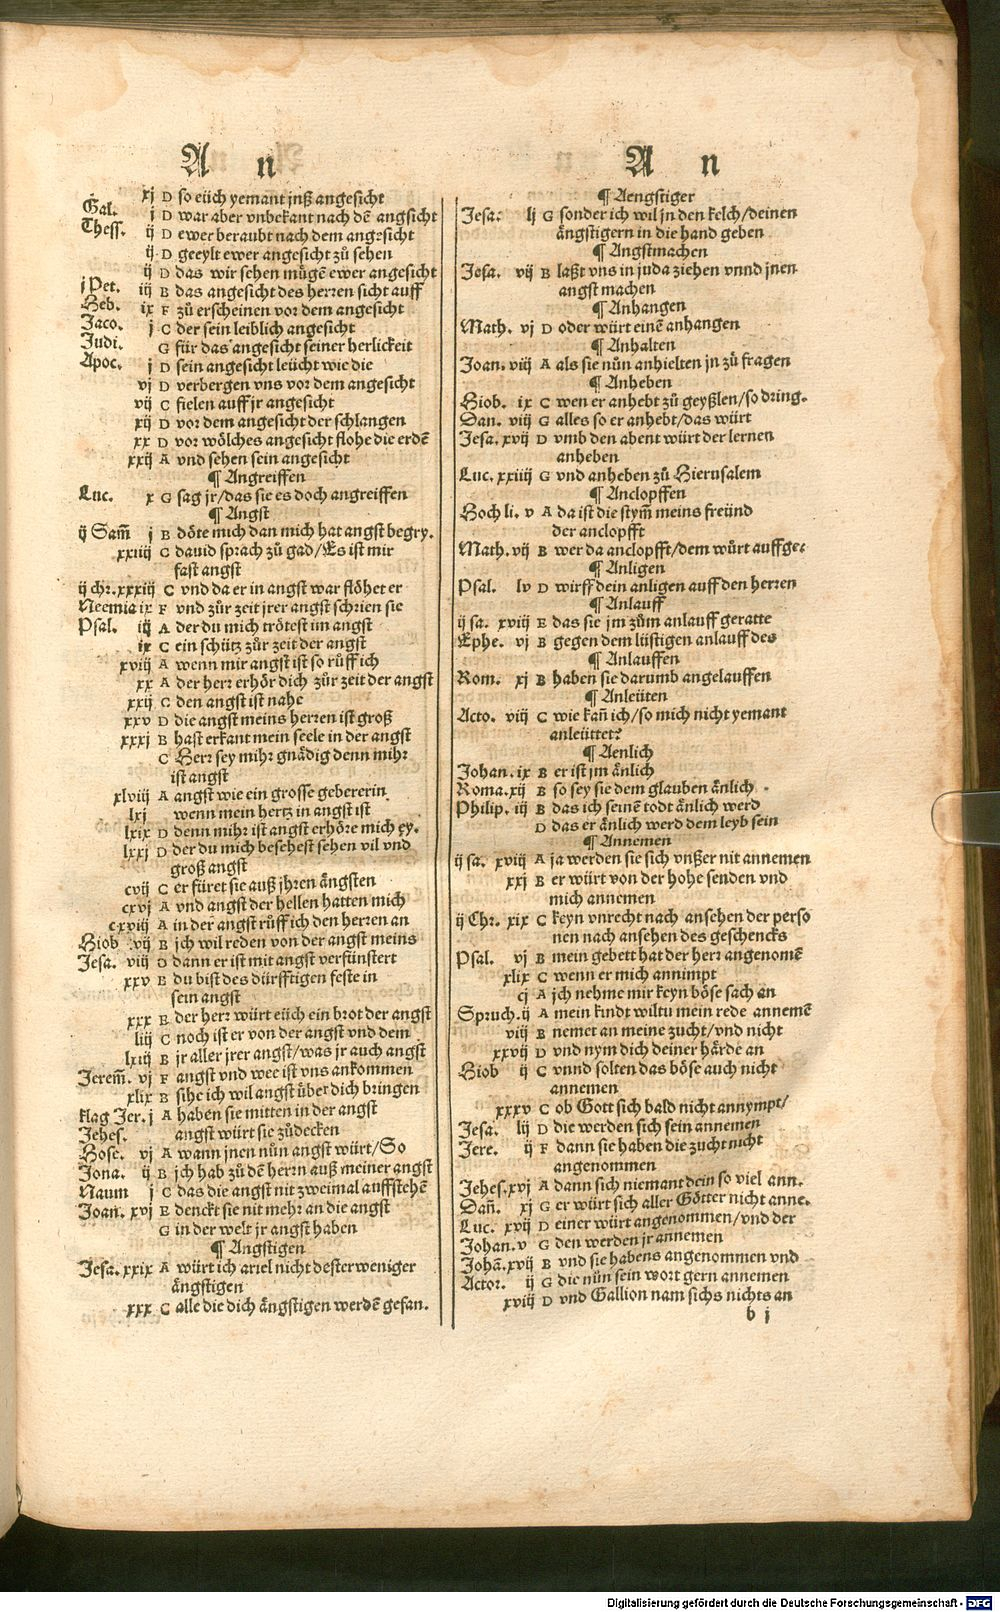 A n
xj D so eüch yemant jnß angesicht
Gal. j D war aber vnbekant nach dē angsicht
Thess. ij D ewer beraubt nach dem angesicht
ij D geeylt ewer angesicht zů sehen
ij D das wir sehen mügē ewer angesicht
j Pet. iij B das angesicht des herren sicht auff
Heb. ix F zů erscheinen vor dem angesicht
Jaco. j C der sein leiblich angesicht
Judi. G für das angesicht seiner herlickeit
Apoc. j D sein angesicht leücht wie die
vj D verbergen vns vor dem angesicht
vij C fielen auff jr angesicht
xij D vor dem angesicht der schlangen
xx D vor wölches angesicht flohe die erdē
xxij A vnd sehen sein angesicht
¶ Angreiffen
Luc. x G sag jr/das sie es doch angreiffen
¶ Angst
ij Sam̄ j B döte mich dan mich hat angst begry.
xxiiij C dauid sprach zů gad/Es ist mir
fast angst
ij chr. xxxiij C vnd da er in angst war flöhet er
Neemia ix F vnd zůr zeit jrer angst schrien sie
Psal. iiij A der du mich trötest im angst
ix C ein schütz zůr zeit der angst
xviij A wenn mir angst ist so růff ich
xx A der herr erhör dich zůr zeit der angst
xxij C den angst ist nahe
xxv D die angst meins herren ist groß
xxxj B hast erkant mein seele in der angst
C Herr sey mihr gnädig denn mihr
ist angst
xlviij A angst wie ein grosse gebererin
lxj wenn mein hertz in angst ist
lxix D denn mihr ist angst erhöre mich ey.
lxxj D der du mich besehest sehen vil vnd
groß angst
cvij C er füret sie auß jhren ängsten
cxvj A vnd angst der hellen hatten mich
cxviij A in der angst růff ich den herren an
Hiob vij B jch wil reden von der angst meins
Jesa. viij D dann er ist mit angst verfinstert
xxv B du bist des dürfftigen feste in
sein angst
xxx E der herr würt eüch ein brot der angst
liij C noch ist er von der angst vnd dem
lxiij B jr aller jrer angst/was jr auch angst
Jerem̄. vj F angst vnd wee ist vns ankommen
xlix B sihe ich wil angst über dich bringen
Klag Jer. j A haben sie mitten in der angst
Jehes. angst würt sie zůdecken
Hose. vj A wann jnen nůn angst würt/So
Jona. ij B jch hab zů dē herrn auß meiner angst
Naum j C das die angst nit zweimal auffstehē
Joan. xvj E denckt sie nit mehr an die angst
G in der welt jr angst haben
¶ Angstigen
Jesa. xxix A würt ich ariel nicht desterweniger
ängstigen
xxx C alle die dich ängstigen werdē gefan.
A n
¶ Aengstiger
Jesa. lj G sonder ich wil jn den kelch/deinen
ängstigern in die hand geben
¶ Angstmachen
Jesa. vij B laßt vns in juda ziehen vnnd jnen
angst machen
¶ Anhangen
Math. vj D oder würt einē anhangen
¶ Anhalten
Joan. viij A als sie nůn anhielten jn zů fragen
¶ Anheben
Hiob. ix C wen er anhebt zů geyßlen/so dring.
Dan. viij G alles so er anhebt/das würt
Jesa. xvij D vmb den abent würt der lernen
anheben
Luc. xxiiij G vnd anheben zů Hierusalem
¶ Anclopffen
Hoch li. v A da ist die stym̄ meins freünd
der anclopfft
Math. vij B wer da anclopfft/dem würt auffge:
¶ Anligen
Psal. lv D wirff dein anligen auff den herren
¶ Anlauff
ij sa. xviij E das sie jm zům anlauff geratte
Ephe. vj B gegen dem listigen anlauff des
¶ Anlauffen
Rom. xj B haben sie darumb angelauffen
¶ Anleüten
Acto. viij C wie kan̄ ich/so mich nicht yemant
anleüttet?
¶ Aenlich
Johan. ix B er ist jm änlich
Roma. xij B so sey sie dem glauben änlich
Philip. iij B das ich seinē todt änlich werd
D das er änlich werd dem leyb sein
¶ Annemen
ij sa. xviij A ja werden sie sich vnßer nit annemen
xxj B er würt von der hohe senden vnd
mich annemen
ij Chr. xix C keyn vnrecht nach ansehen der perso
nen nach ansehen des geschencks
Psal. vj B mein gebett hat der herr angenomē
xlix C wenn er mich annimpt
cj A jch nehme mir keyn böse sach an
Spruch. ij A mein kindt wiltu mein rede annemē
viij B nemet an meine zucht/vnd nicht
xxvij D vnd nym dich deiner härde an
Hiob ij C vnnd solten das böse auch nicht
annemen
xxxv C ob Gott sich bald nicht annympt/
Jesa. lij D die werden sich sein annemen
Jere. ij F dann sie haben die zucht nicht
angenommen
Jehes. xvj A dann sich niemant dein so viel ann.
Dan̄. xj G er würt sich aller Götter nicht anne.
Luc. xvij D einer würt angenommen/vnd der
Johan. v G den werden jr annemen
Johā. xvij B vnd sie habens angenommen vnd
Actor. ij G die nůn sein wort gern annemen
xviij D vnd Gallion nam sichs nichts an
b j
Digitalisierung gefördert durch die Deutsche Forschungsgemeinschaft - DFG